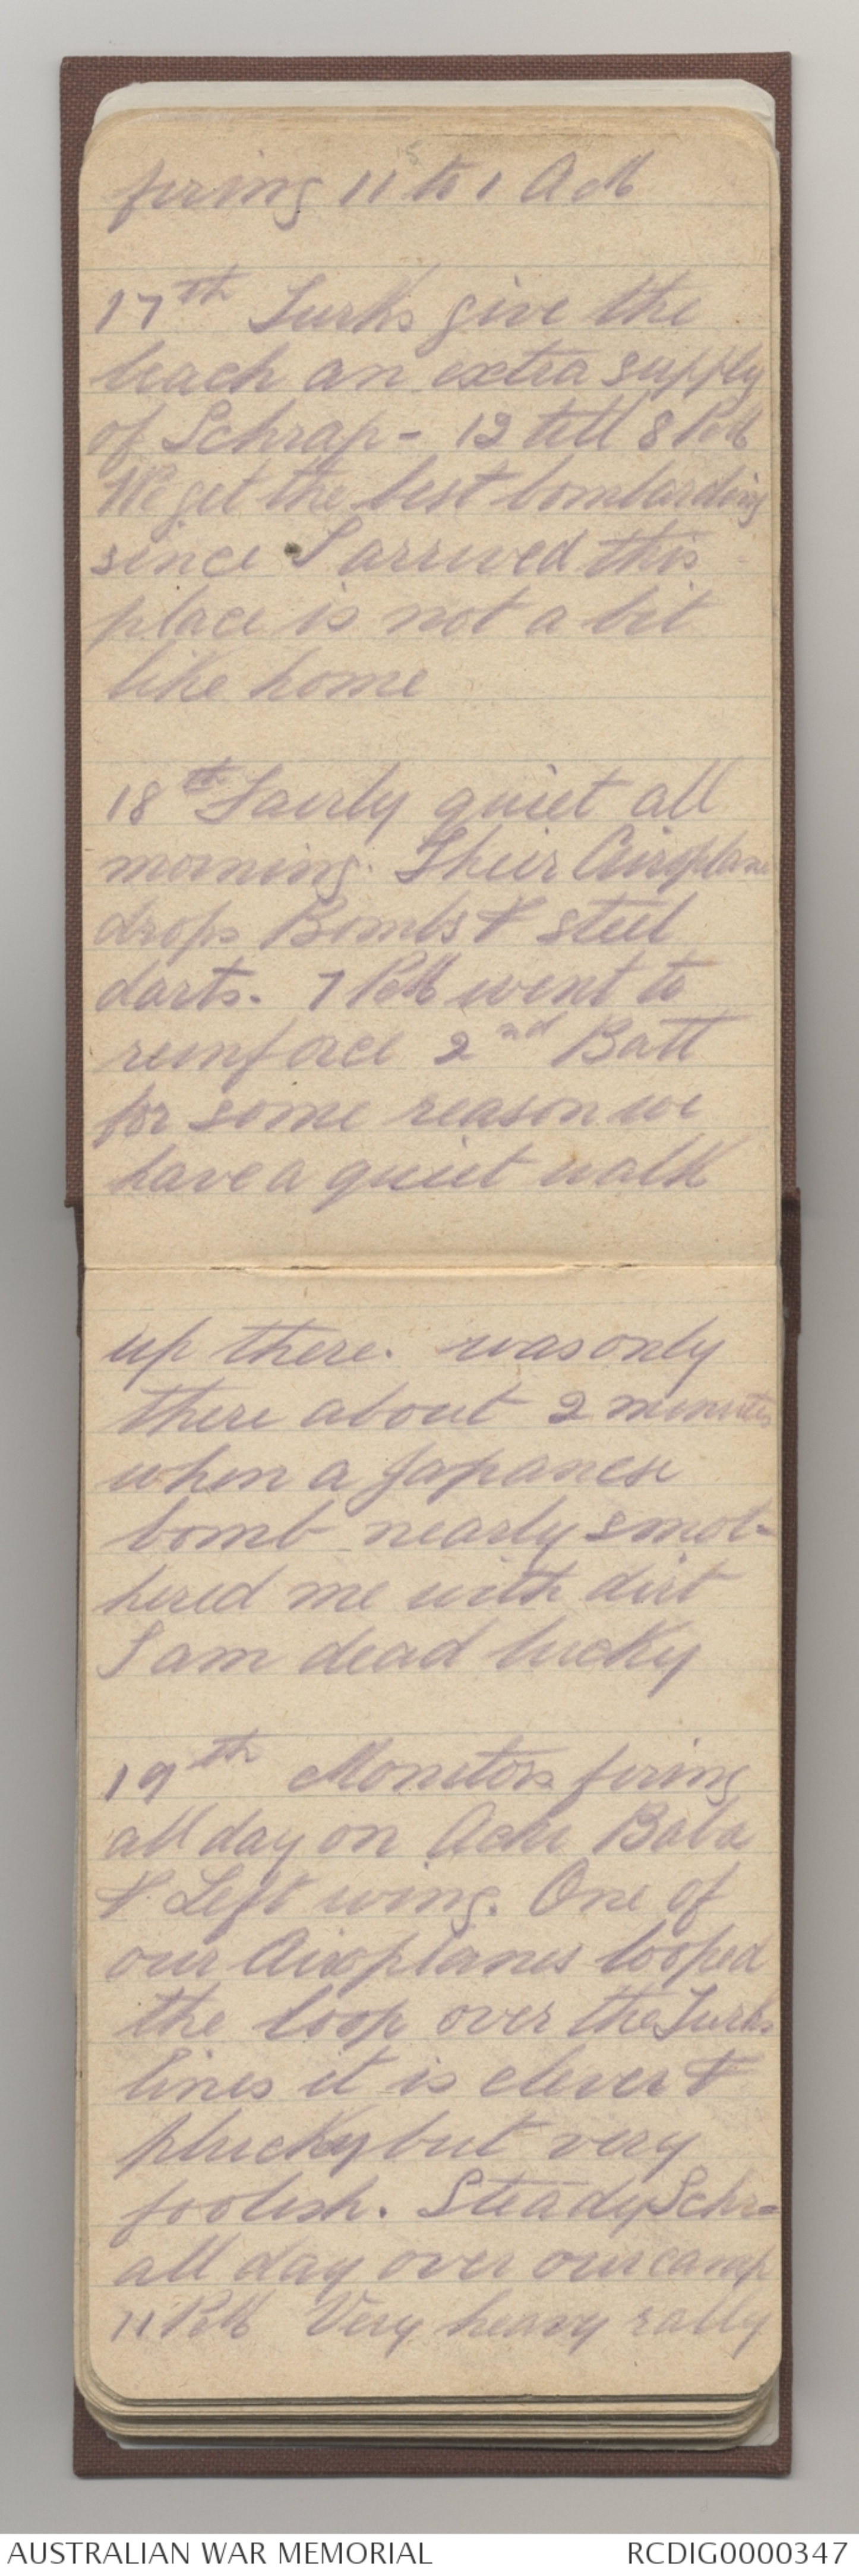 firing 11 to 1 AM
17th Turks give the
beach an extra supply
of Schrap- 12 till 8 PM
We get the best bombarding
since I arrived this
place is not a bit
like home
18th Fairly quiet all
morning. Their Airoplane
drops Bombs & steel
darts. 7 PM went to
reinforce 2nd Batt
for some reason we
have a quiet walk
up there. was only
there about 2 minutes
when a Japanese
bomb nearly smot-
hered me with dirt
I am dead lucky
19th Monitors firing
all day on Achi Baba
& Left wing. One of
our Airoplanes looped
the loop over the Turks
lines it is clever &
plucky but very
foolish. Steady Schr-
all day over our camp
11 PM Very heavy rally
AUSTRALIAN WAR MEMORIAL
RCDIG0000347